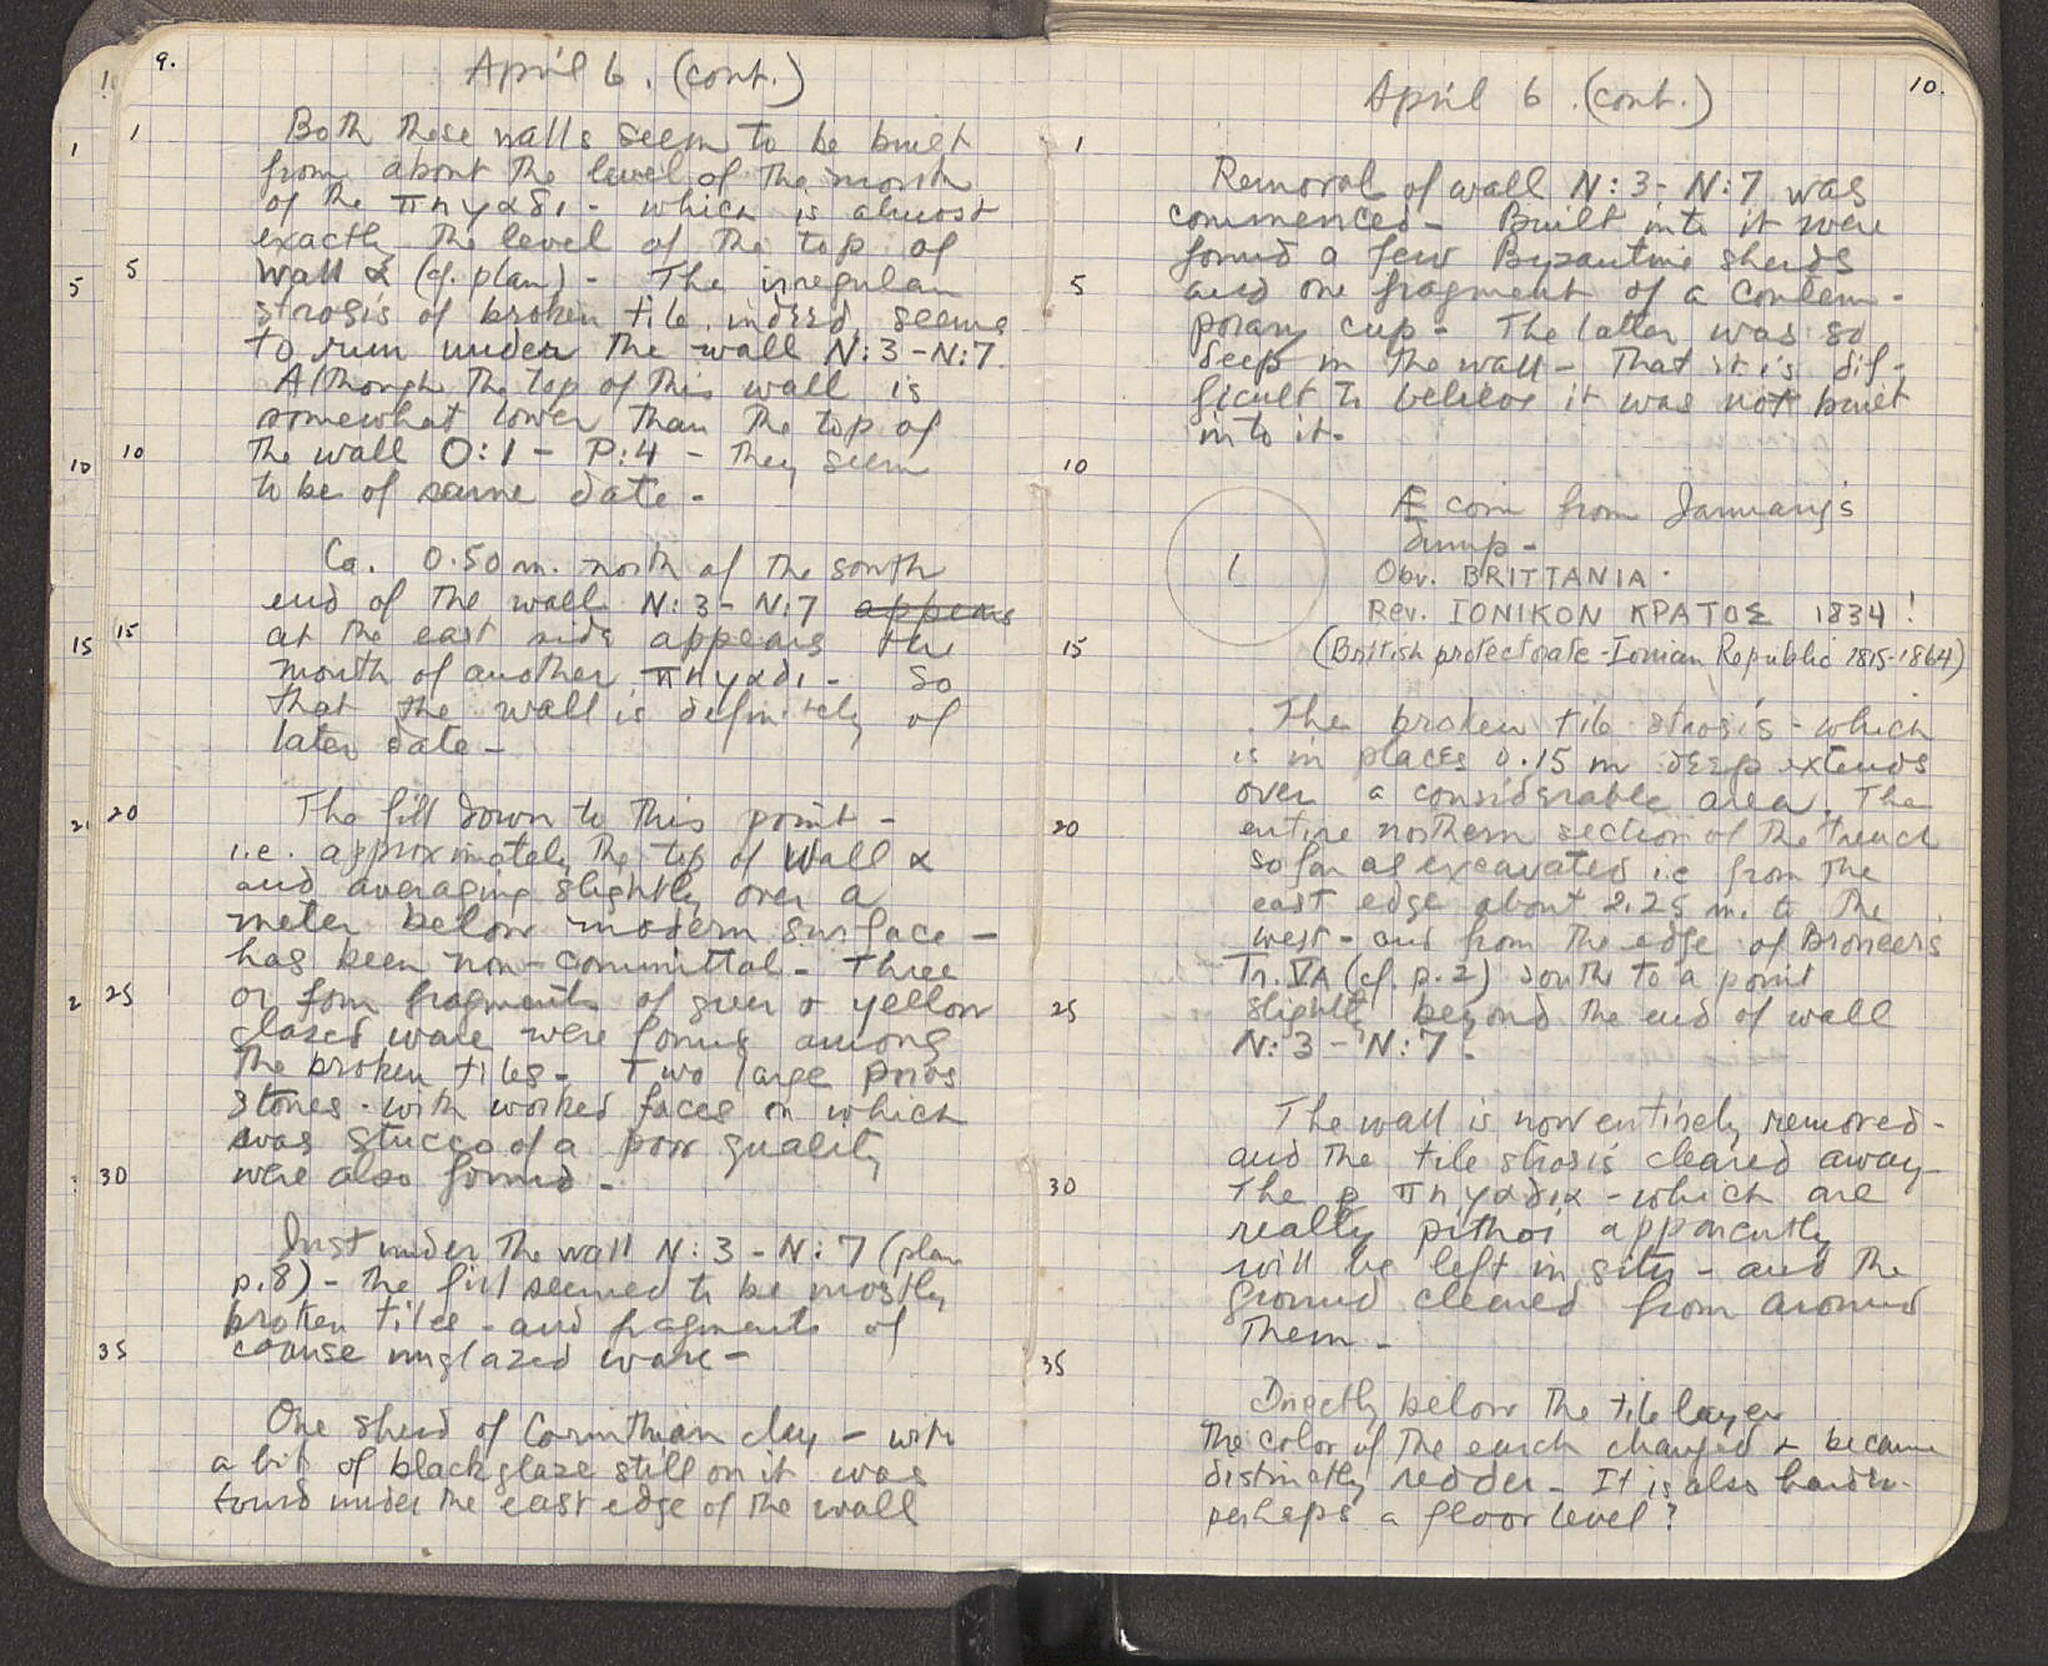 9.
April 6. (cont.)
1
Both these walls seem to be built
from about the level of the mouth
of the πηγαδι - which is almost
exactly the level of the top of
5
wall α (cf. plan) - The irregular
strosis of broken tile, indeed, seems
to run under the wall N:3-N:7.
Although the top of this wall is
somewhat lower than the top of
10
the wall O:1 - P:4 - they seem
to be of same date -
Ca. 0.50 m. north of the south
end of the wall N:3-N:7 appears
15
at the east side appears the
mouth of another πηγαδι - So
that the wall is definitely of
later date -
20
The fill down to this point -
i.e. approximately the top of Wall α
and averaging slightly over a
meter below modern surface -
has been non-committal - Three
25
or four fragments of green & yellow
glazed ware were found among
the broken tiles - Two large poros
stones - with worked faces on which
was stucco of a poor quality
30
were also found -
Just under the wall N:3-N:7 (plan
p.8) - the fill seemed to be mostly
broken tiles - and fragments of
35
coarse unglazed ware -
One sherd of Corinthian clay - with
a bit of black glaze still on it was
found under the east edge of the wall
10.
April 6. (cont.)
1
Removal of wall N:3-N:7 was
commenced - Built into it were
found a few Byzantine sherds
5
and one fragment of a contem-
porary cup - The latter was so
deep in the wall - that it is dif-
ficult to believe it was not built
into it -
10
Æ coin from January's
dump -
1
Obv. BRITTANIA
Rev. ΙΟΝΙΚΟΝ ΚΡΑΤΟΣ 1834!
15
(British protectorate - Ionian Republic 1815-1864)
The broken tile strosis - which
is in places 0.15 m deep extends
over a considerable area. The
20
entire northern section of the trench
so far as excavated i.e from the
east edge about 2.25 m. to the
west - and from the edge of Broneer's
Tr. VA (cf. p.2) south to a point
25
slightly beyond the end of wall
N:3-N:7.
The wall is now entirely removed -
and the tile strosis cleared away -
30
The p πηγαδια - which are
really pithoi apparently
will be left in situ - and the
ground cleared from around
them -
35
Directly below the tile layer
the color of the earth changed & became
distinctly redder - It is also harder -
perhaps a floor level?
1
5
10
15
2